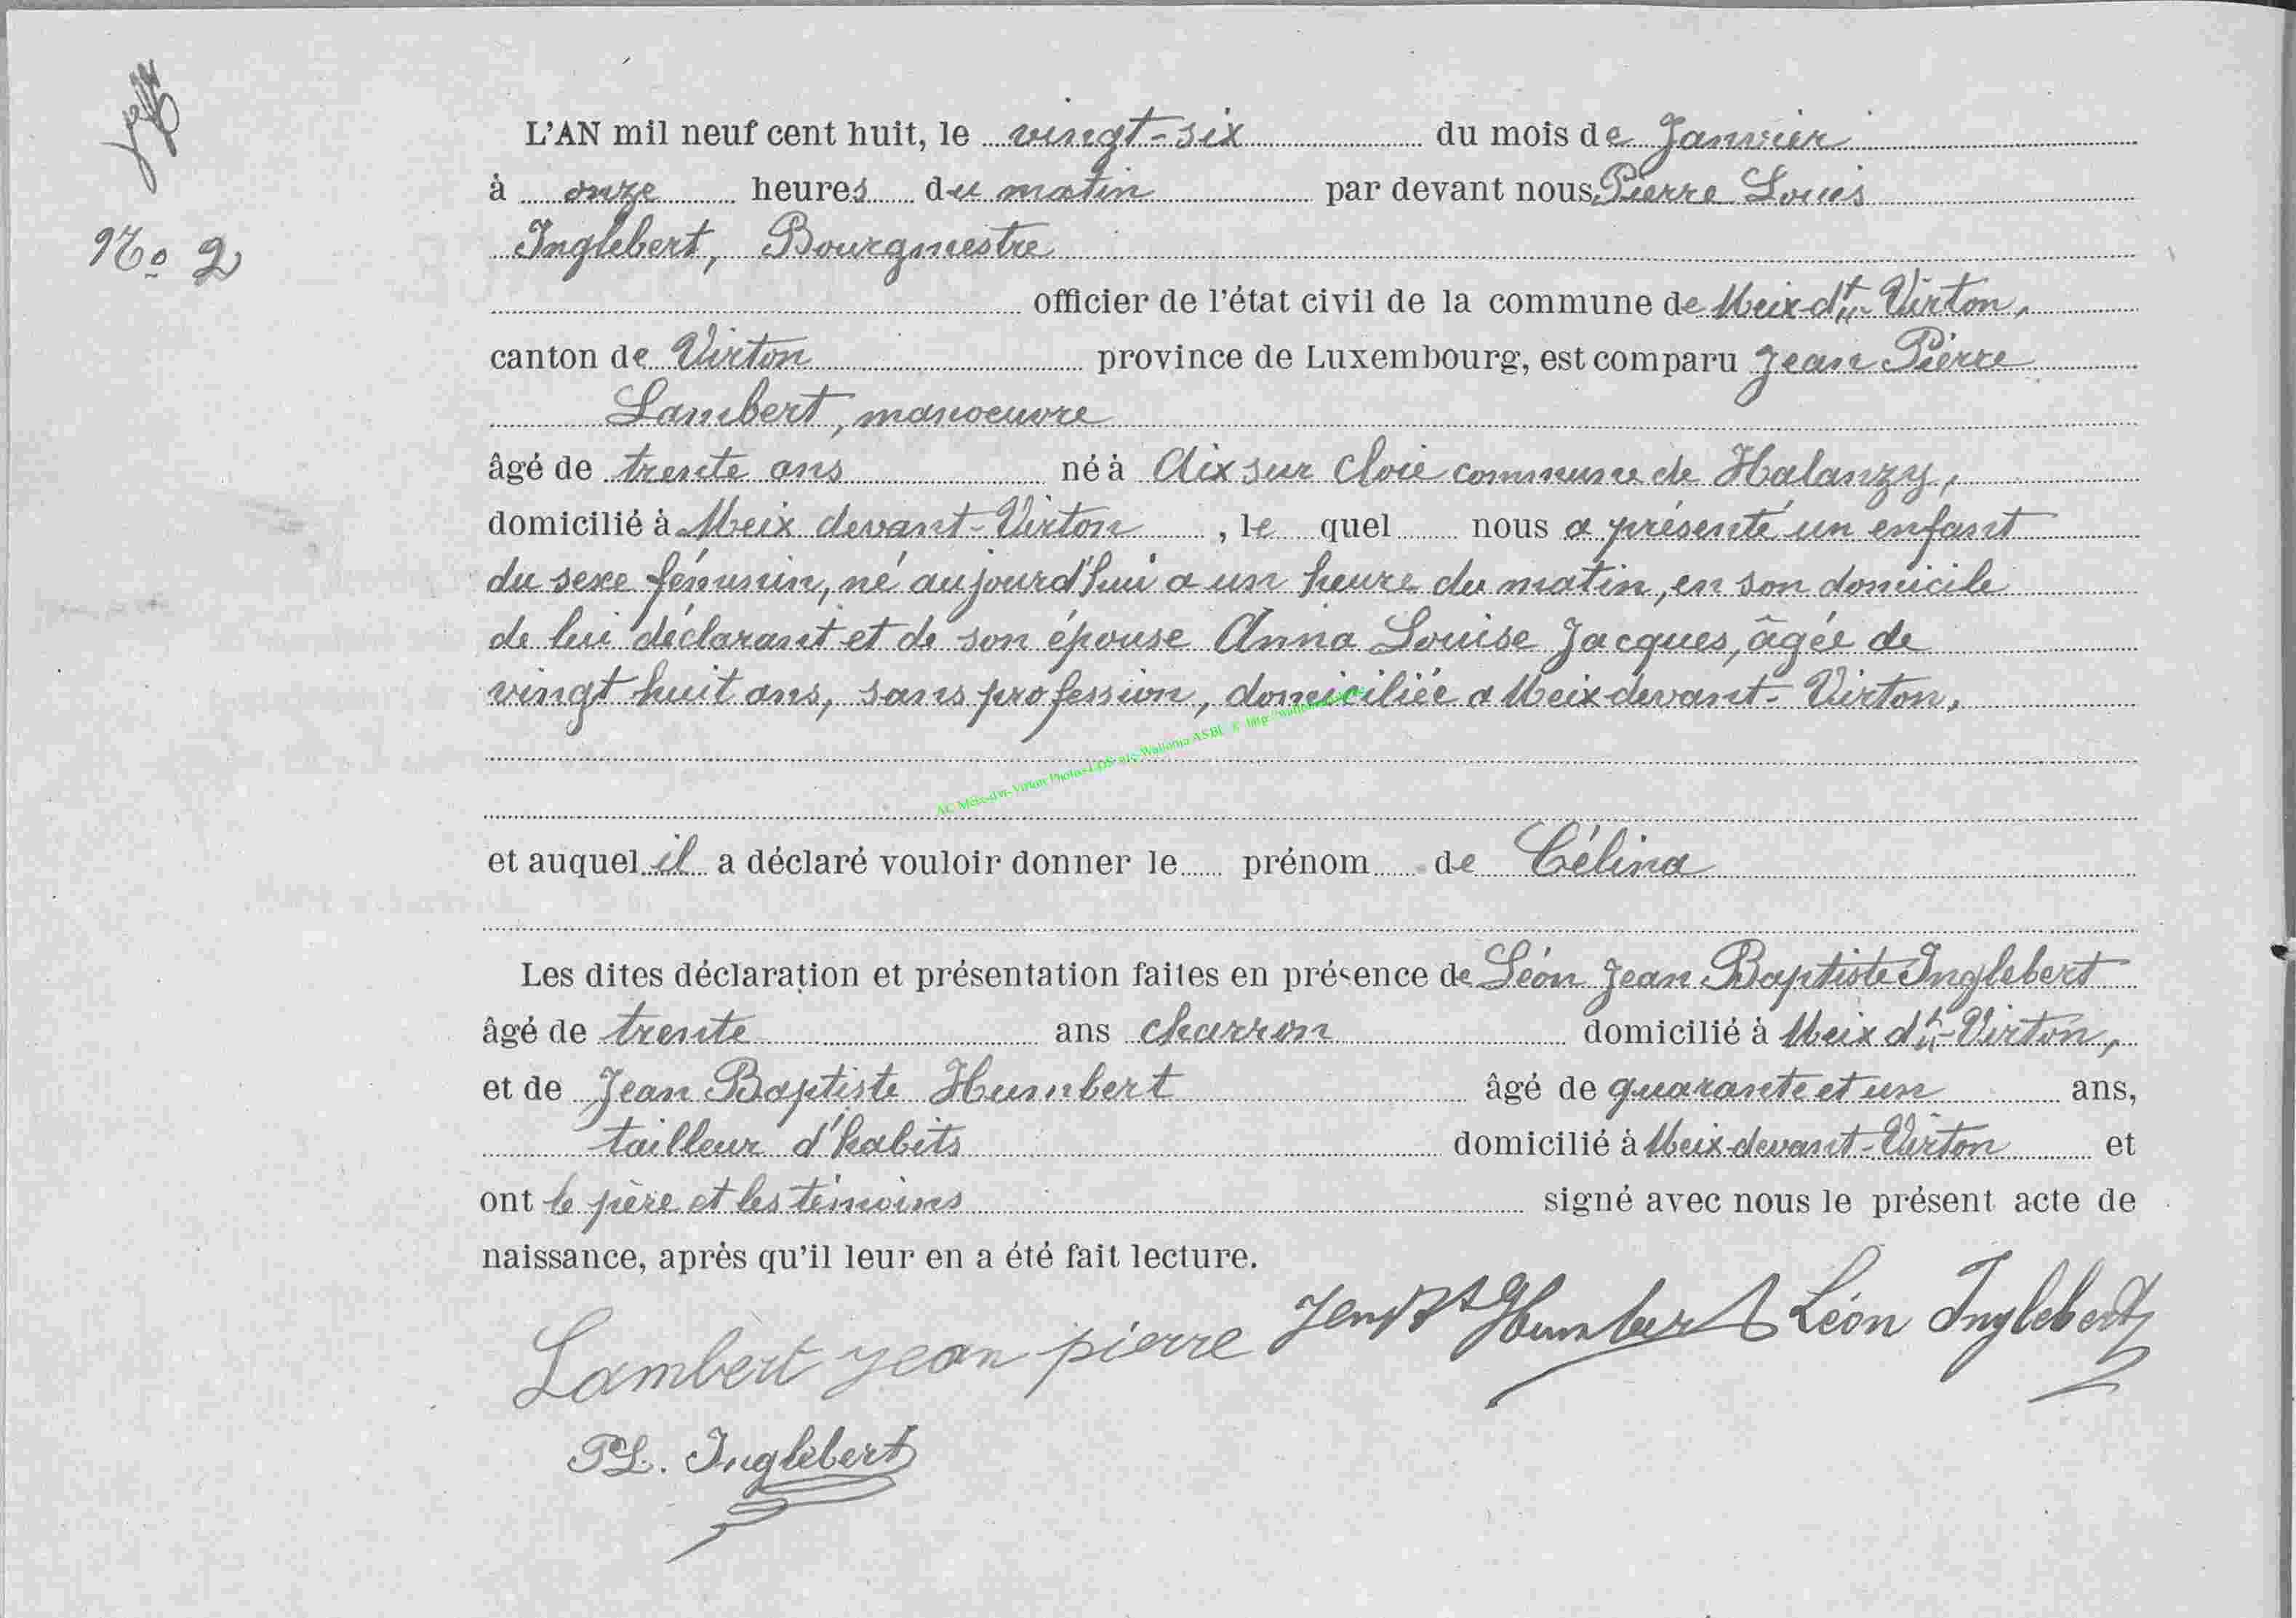 L'AN mil neuf cent huit, le vingt-six du mois de Janvier
à onze heures du matin par devant nous Pierre Louis
Nº 2
Inglebert, Bourgmestre
officier de l'état civil de la commune de Meix-dt-Virton,
canton de Virton province de Luxembourg, est comparu Jean Pierre
Lambert, manoeuvre
âgé de trente ans né à Aix sur Cloie commune de Halanzy,
domicilié à Meix devant-Virton, le quel nous a présenté un enfant
du sexe féminin, né aujourd'hui a un heure du matin, en son domicile
de lui déclarant et de son épouse Anna Louise Jacques, âgée de
vingt huit ans, sans profession, domiciliée a Meix-devant-Virton,
et auquel il a déclaré vouloir donner le prénom de Célina
Les dites déclaration et présentation faites en présence de Léon Jean Baptiste Inglebert
âgé de trente ans charron domicilié à Meix dt-Virton,
et de Jean Baptiste Humbert âgé de quarante et un ans,
tailleur d'habits domicilié à Meix-devant-Virton et
ont le père et les témoins signé avec nous le présent acte de
naissance, après qu'il leur en a été fait lecture.
Lambert jean pierre Humbert Léon Inglebert
PL. Inglebert